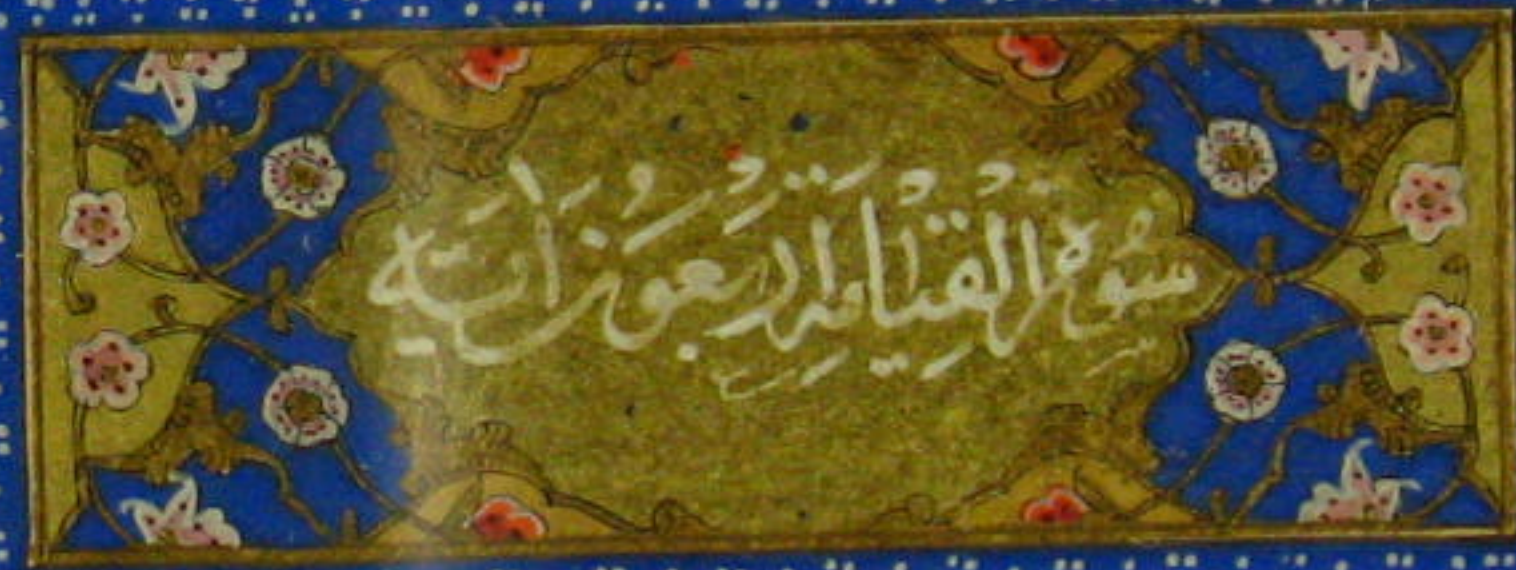 سُورَةُ الْقِيَامَةِ اَرْبَعُونَ اٰيَةً